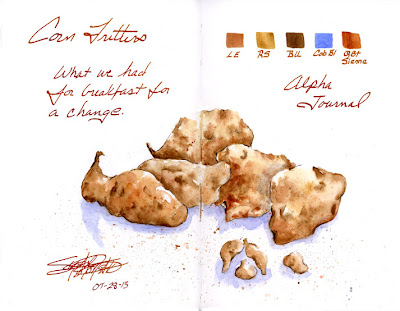 Corn Fritters
What we had
for breakfast for
a change.
LE RS BU Cob Bl QBt
Sienna
Alpha
Journal
07-28-13